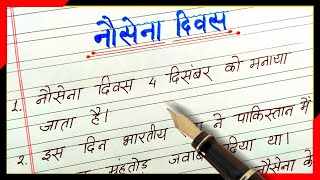 नौसेना दिवस
1. नौसेना दिवस 4 दिसंबर को मनाया
जाता है।
2. इस दिन भारतीय ने पाकिस्तान में
मुंहतोड़ जवाब दिया था।
नौसेना के